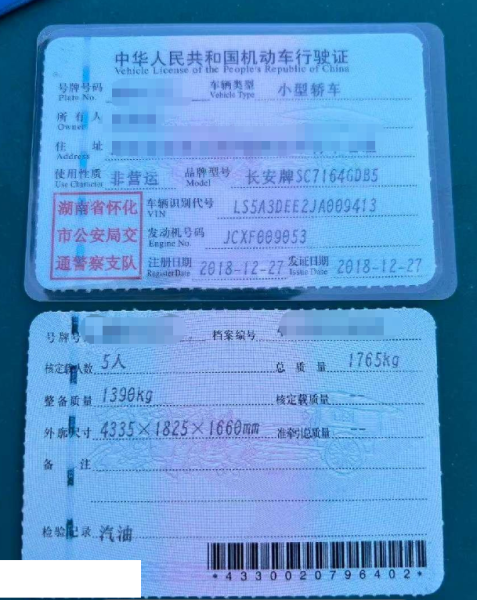 中华人民共和国机动车行驶证
Vehicle License of the People's Republic of China
号牌号码 Plate No. 车辆类型 Vehicle Type 小型轿车
所有人 Owner
住址 Address
使用性质 Use Character 非营运 品牌型号 Model 长安牌SC7164GDB5
湖南省怀化
市公安局交
通警察支队
车辆识别代号 VIN LS5A3DEE2JA009413
发动机号码 Engine No. JCXF009053
注册日期 Register Date 2018-12-27 发证日期 Issue Date 2018-12-27
号牌号 档案编号
核定载人数 5人 总质量 1765kg
整备质量 1390kg 核定载质量 --
外廓尺寸 4335×1825×1660mm 准牵引总质量 --
备注
检验记录 汽油
*4330020796402*